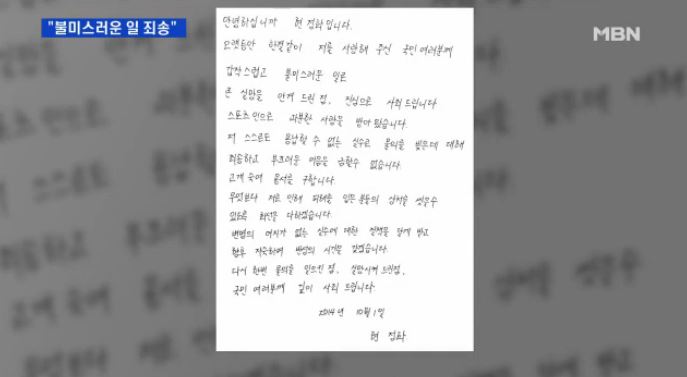 "불미스러운 일 죄송"
MBN
안녕하십니까 현 정화입니다.
오랫동안 한결같이 저를 사랑해 주신 국민 여러분께
갑작스럽고 불미스러운 일로
큰 실망을 안겨 드린 점, 진심으로 사죄 드립니다
스포츠인으로 과분한 사랑을 받아 왔습니다.
저 스스로도 용납할 수 없는 실수로 물의를 빚은데 대해
죄송하고 부끄러운 마음을 금할수 없습니다.
고개 숙여 용서를 구합니다.
무엇보다 저로 인해 피해를 입은 분들의 상처를 씻을수
있도록 최선을 다하겠습니다.
변명의 여지가 없는 실수에 대한 질책을 달게 받고
향후 자숙하며 반성의 시간을 갖겠습니다.
다시 한번 물의를 일으킨 점, 실망시켜 드린점,
국민 여러분께 깊이 사죄 드립니다.
2014년 10월 1일
현 정화